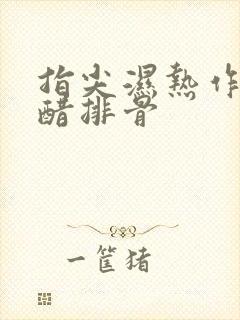 指尖濕熱作
醋排骨
一筐猪